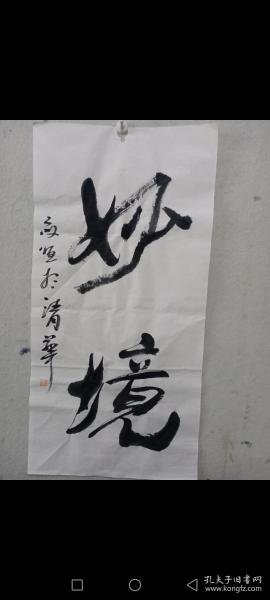 妙境
于清華
孔夫子旧书网
www.kongfz.com